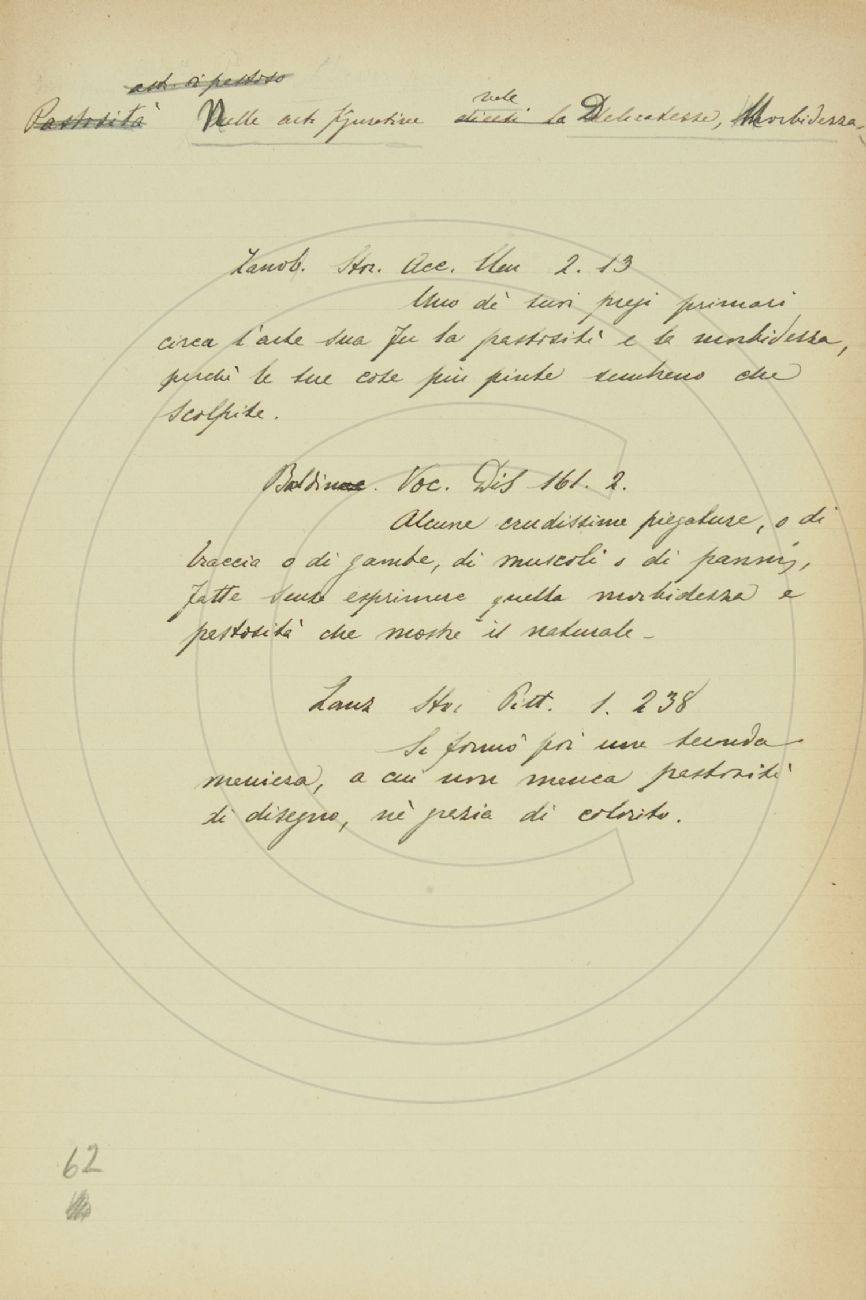 ast. di pastoso
Pastosità Nelle arti figurative vale dicesi la Delicatezza, Morbidezza.
Zanob. Stor. Acc. Men 2. 13
Uno de' suoi pregi primari
circa l'arte sua fu la pastosità e la morbidezza,
perchè le sue cose più pinte sembrano che
scolpite.
Baldinuc. Voc. Dis 161. 2.
Alcune crudissime piegature, o di
braccia o di gambe, di muscoli o di panni,
fatte senza esprimere quella morbidezza e
pastosità che mostra il naturale
Lanz Stor Pitt. 1. 238
Si formò poi una seconda
maniera, a cui non manca pastosità
di disegno, nè grazia di colorito.
62